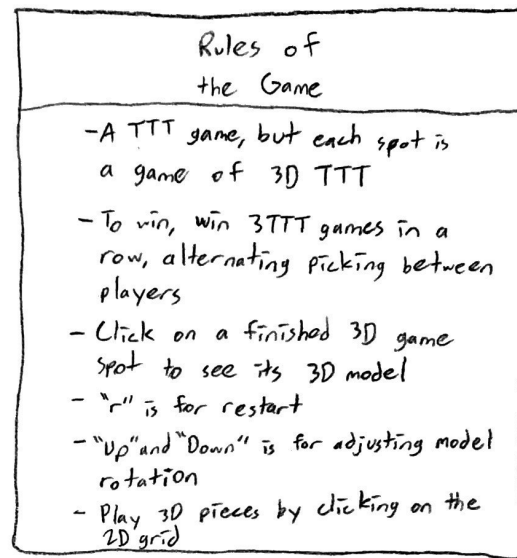 Rules of
the Game
-A TTT game, but each spot is
a game of 3D TTT
- To win, win 3TTT games in a
row, alternating picking between
players
- Click on a finished 3D game
spot to see its 3D model
- "r" is for restart
- "Up" and "Down" is for adjusting model
rotation
- Play 3D pieces by clicking on the
2D grid